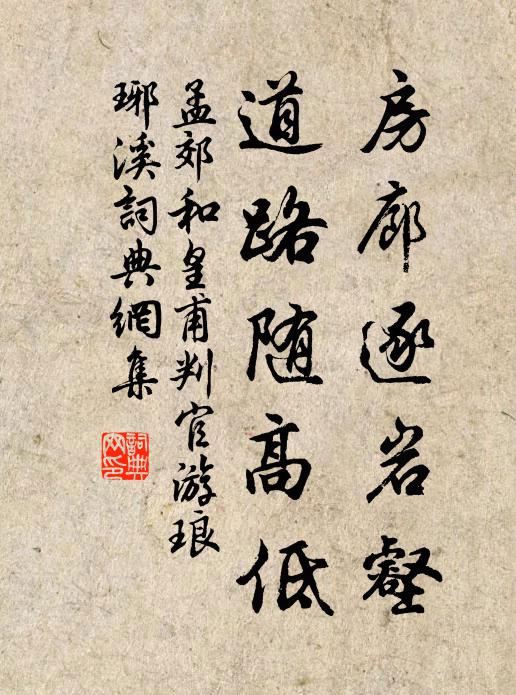 房廊逐岩壑
道路随高低
孟郊和皇甫判官游琅
琊溪词典網集
詞典网印